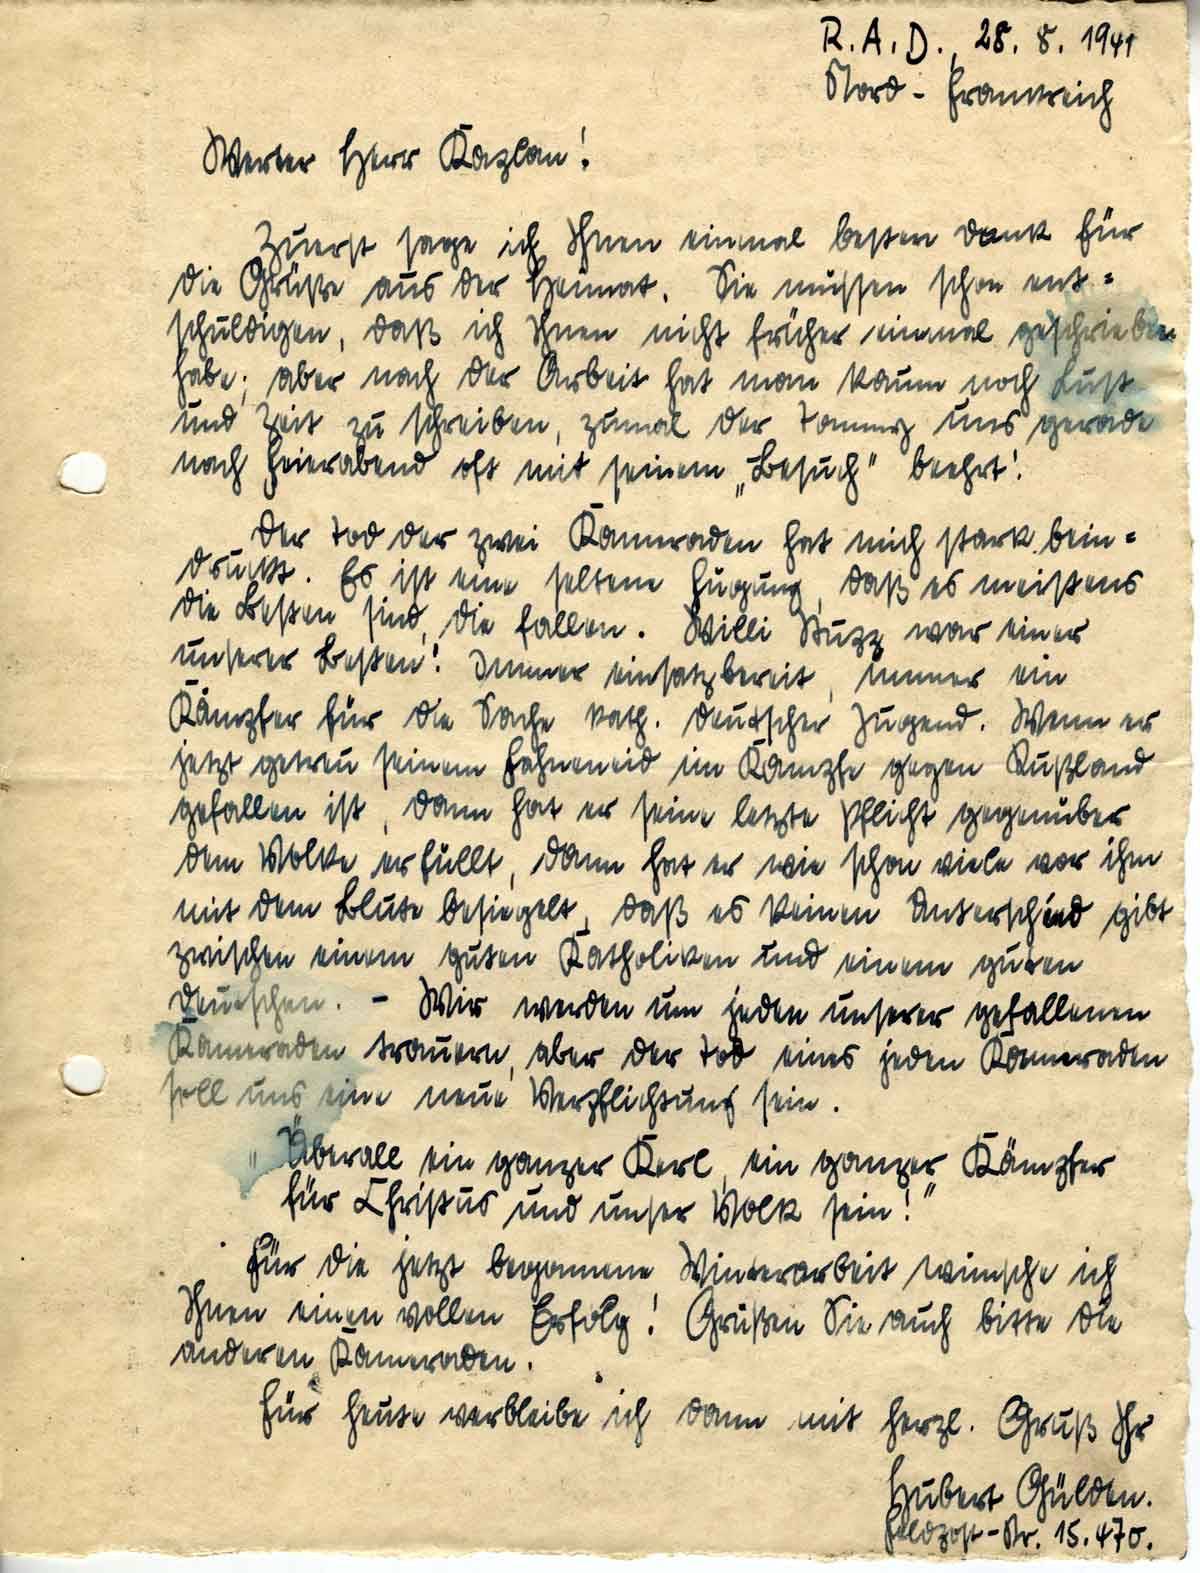 R.A.D., 28. 8. 1941
Nord-Frankreich
Werter Herr Kaplan!
Zuerst sage ich Ihnen einmal besten Dank für
die Grüße aus der Heimat. Sie müssen schon ent=
schuldigen, daß ich Ihnen nicht früher einmal geschrieben
habe; aber nach der Arbeit hat man kaum noch Lust
und Zeit zu schreiben, zumal der Tommy uns gerade
nach Feierabend oft mit seinem „Besuch" beehrt!
Der Tod der zwei Kameraden hat mich stark bein=
druckt. Es ist eine seltene Fügung, daß es meistens
die Besten sind, die fallen. Willi war einer
unserer Besten! Immer einsatzbereit, immer ein
Kämpfer für die Sache kath. deutscher Jugend. Wenn er
jetzt getreu seinem Fahneneid im Kampfe gegen Rußland
gefallen ist, dann hat er seine letzte Pflicht gegenüber
dem Volke erfüllt, dann hat er wie schon viele vor ihm
mit dem Blute besiegelt, daß es keinen Unterschied gibt
zwischen einem guten Katholiken und einem guten
Deutschen. - Wir werden um jeden unserer gefallenen
Kameraden trauern, aber der Tod eines jeden Kameraden
soll uns eine neue Verpflichtung sein.
„Überall ein ganzer Kerl, ein ganzer Kämpfer
für Christus und unser Volk sein!"
Für die jetzt begonnene Winterarbeit wünsche ich
Ihnen einen vollen Erfolg! Grüßen Sie auch bitte die
anderen Kameraden.
Für heute verbleibe ich dann mit herzl. Gruß Ihr
Hubert Gülden.
Feldpost-Nr. 15.470.